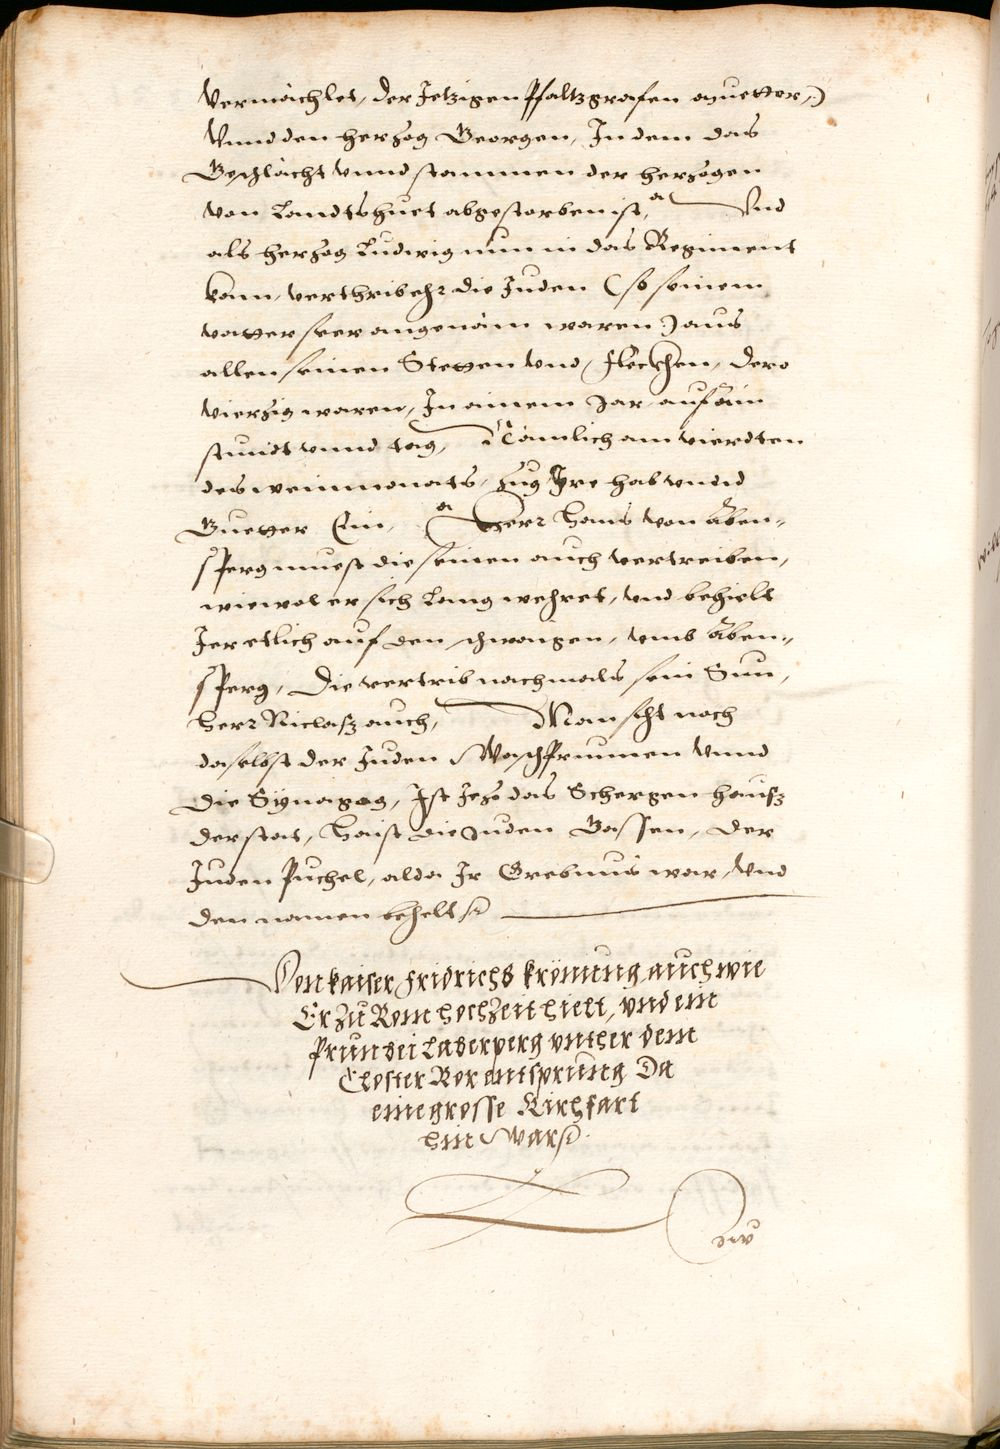 Vermächlet, der Jetzigen Pfaltzgrafen muetter,)
Vnnd den herzog Georgen, In dem das
Geschlächt vnnd stammen der herzogen
von Landtshuet abgestorben ist, Vnd
als herzog Ludwig nun in das Regiment
kam, verthrib ehr die Juden (so seinem
vatter seer angenäm waren :) aus
allen seinen Stetten vnd, fleckhen, dero
vierzig waren, In ainem Jar, auf äin
stundt vnnd tag, Nämlich am vierdten
des weinmonats, zug Jre hab vnnd
Guetter Ein, Herr Hans von Aben-
sperg muest die seinen auch vertreiben,
wiewol er sich Lang wehret, vnd behielt
Jer etlich auf den schwaigen, vmb Aben-
sperg, Die vertrib nachmals sein Sun,
Herr Niclasz auch, Man siht noch
daselbst der Juden Waschprunnen vnnd
die Synagog, Ist Jezo das Schergen hausz
der stat, Haist die Juden Gassen, der
Juden Puchel, alda Jr Grebnus war, Vnd
den namen behelt
Von kaiser Fridrichs krönung auch wie
Er zu Rom hochzeit hielt, vnd ein
Prun bei Laberperg vnther dem
Closter Ror entsprung Da
eine grosse Kirchfart
hin war